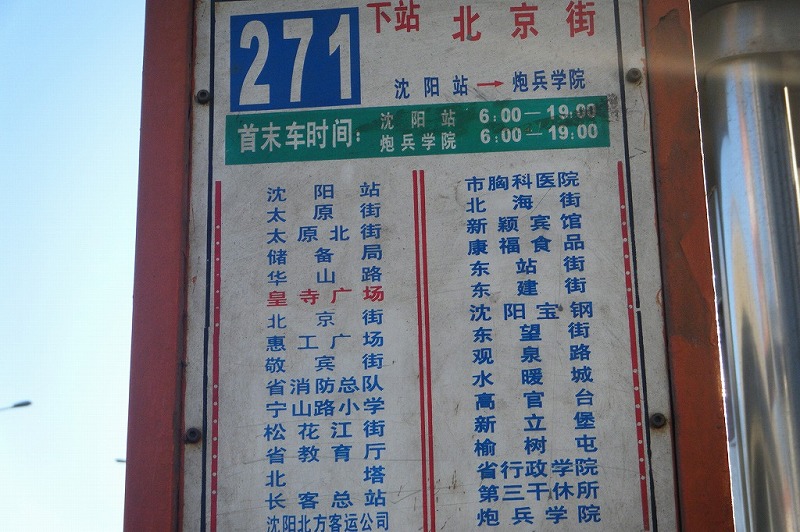 271
下站 北京街
沈阳站→炮兵学院
首末车时间：
沈阳站 6:00—19:00
炮兵学院 6:00—19:00
沈阳站
太原街
太原北街
储备局
华山路
皇寺广场
北京街
惠工广场
敬宾街
省消防总队
宁山路小学
松花江街
省教育厅
北塔
长客总站
沈阳北方客运公司
市胸科医院
北海街
新颖宾馆
康福食品
东站街
东建街
沈阳宝钢
东望街
观泉路
水暖城
高官台
新立堡
榆树屯
省行政学院
第三干休所
炮兵学院